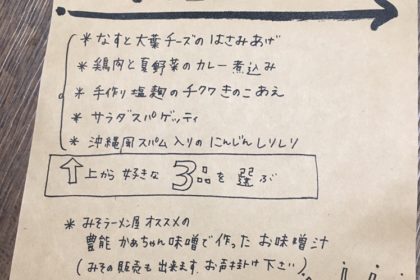 * なすと大葉チーズのはさみあげ
* 鶏肉と夏野菜のカレー煮込み
* 手作り塩麹のチクワきのこあえ
* サラダスパゲッティ
* 沖縄風スパム入りのにんじんしりしり
↑上から好きな3品を選ぶ
* みそラーメン屋オススメの
豊能かあちゃん味噌で作ったお味噌汁
(みその販売も出来ます。お声掛け下さい)